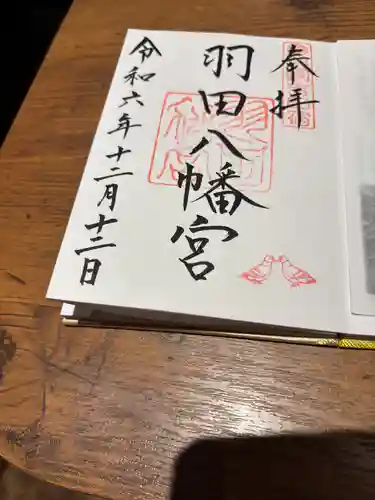 奉拝
羽田八幡宮
令和六年十二月十二日